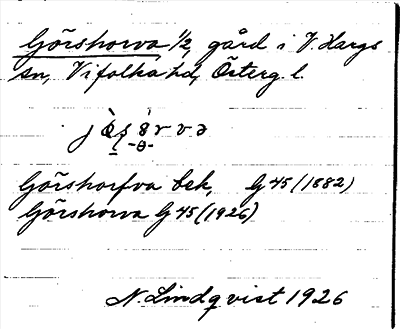 Görshorva 1/2, gård i V. Hargs
sn, Vifolka hd, Österg. l.
Görshorfva bek, G 45 (1882)
Görshorva G 45 (1926)
N. Lindqvist 1926